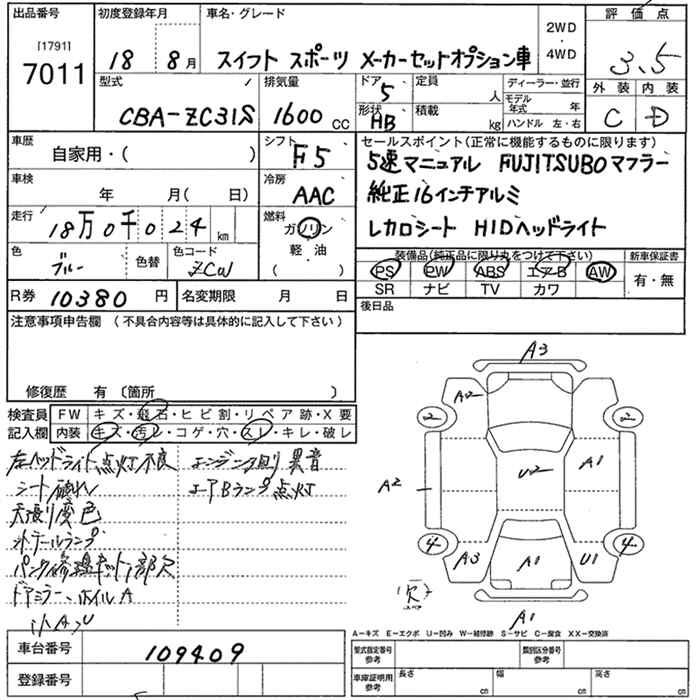 出品番号
[1791]
7011
初度登録年月
18 8月
車名・グレード
スイフト スポーツ メーカーセットオプション車
2WD
・
4WD
評価点
3.5
外装 内装
C D
型式
CBA-ZC31S
排気量
1600 CC
ドア
5
形状
HB
定員
人
積載
kg
ディーラー・並行
モデル年式 年
ハンドル 左・右
車歴
自家用・( )
シフト
F5
車検
年 月( 日)
冷房
AAC
走行
18万0千024 km
燃料
ガソリン
軽・油
( )
色
ブルー
色替
色コード
ZCW
R券 10380 円
名変期限 月 日
セールスポイント(正常に機能するものに限ります)
5速マニュアル FUJITSUBOマフラー
純正16インチアルミ
レカロシート HIDヘッドライト
装備品(純正品に限り丸をつけて下さい)
PS PW ABS エアB AW
SR ナビ TV カワ
新車保証書
有・無
後日品
注意事項申告欄 (不具合内容等は具体的に記入して下さい)
修復歴 有 〔箇所 〕
検査員
記入欄
FW キズ・飛石・ヒビ割・リペア跡・X要
内装 キズ・汚レ・コゲ・穴・スレ・キレ・破レ
左ヘッドライト点灯不良
シート破れ
天張り変色
社外テールランプ
パンク修理キット1部欠
ドアミラー、ホイルA
小A、U
エンジン回り異音
エアBランプ点灯
A3
A2
2
2
U2
A1
A2
4
4
A3
A1
U1
欠
A1
A-キズ E-エクボ U-凹み W-補修跡 S-サビ C-腐食 XX-交換済
車台番号 109409
登録番号
型式指定番号
参考
類別区分番号
参考
車庫証明用
参考
長さ cm
幅 cm
高さ cm